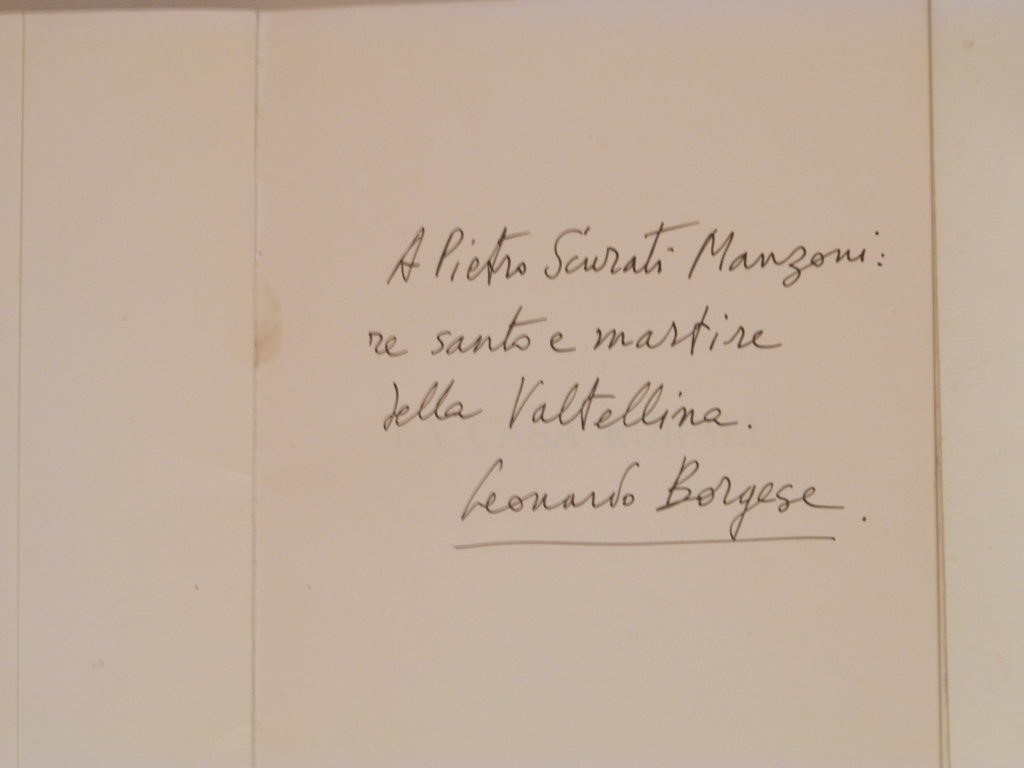 A Pietro Scurati Manzoni:
re santo e martire
della Valtellina.
Leonardo Borgese.
LA CASA RURALE